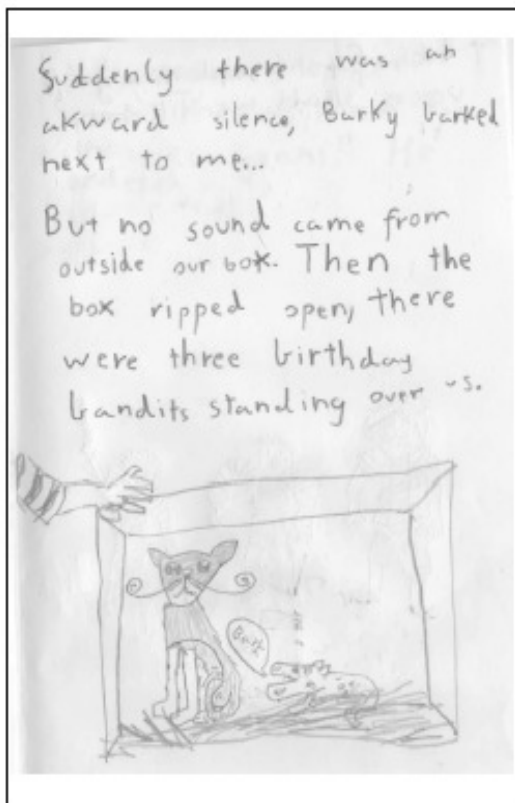 Suddenly there was an
akward silence, Barky barked
next to me...
But no sound came from
outside our box. Then the
box ripped open, there
were three birthday
bandits standing over us.
Bark